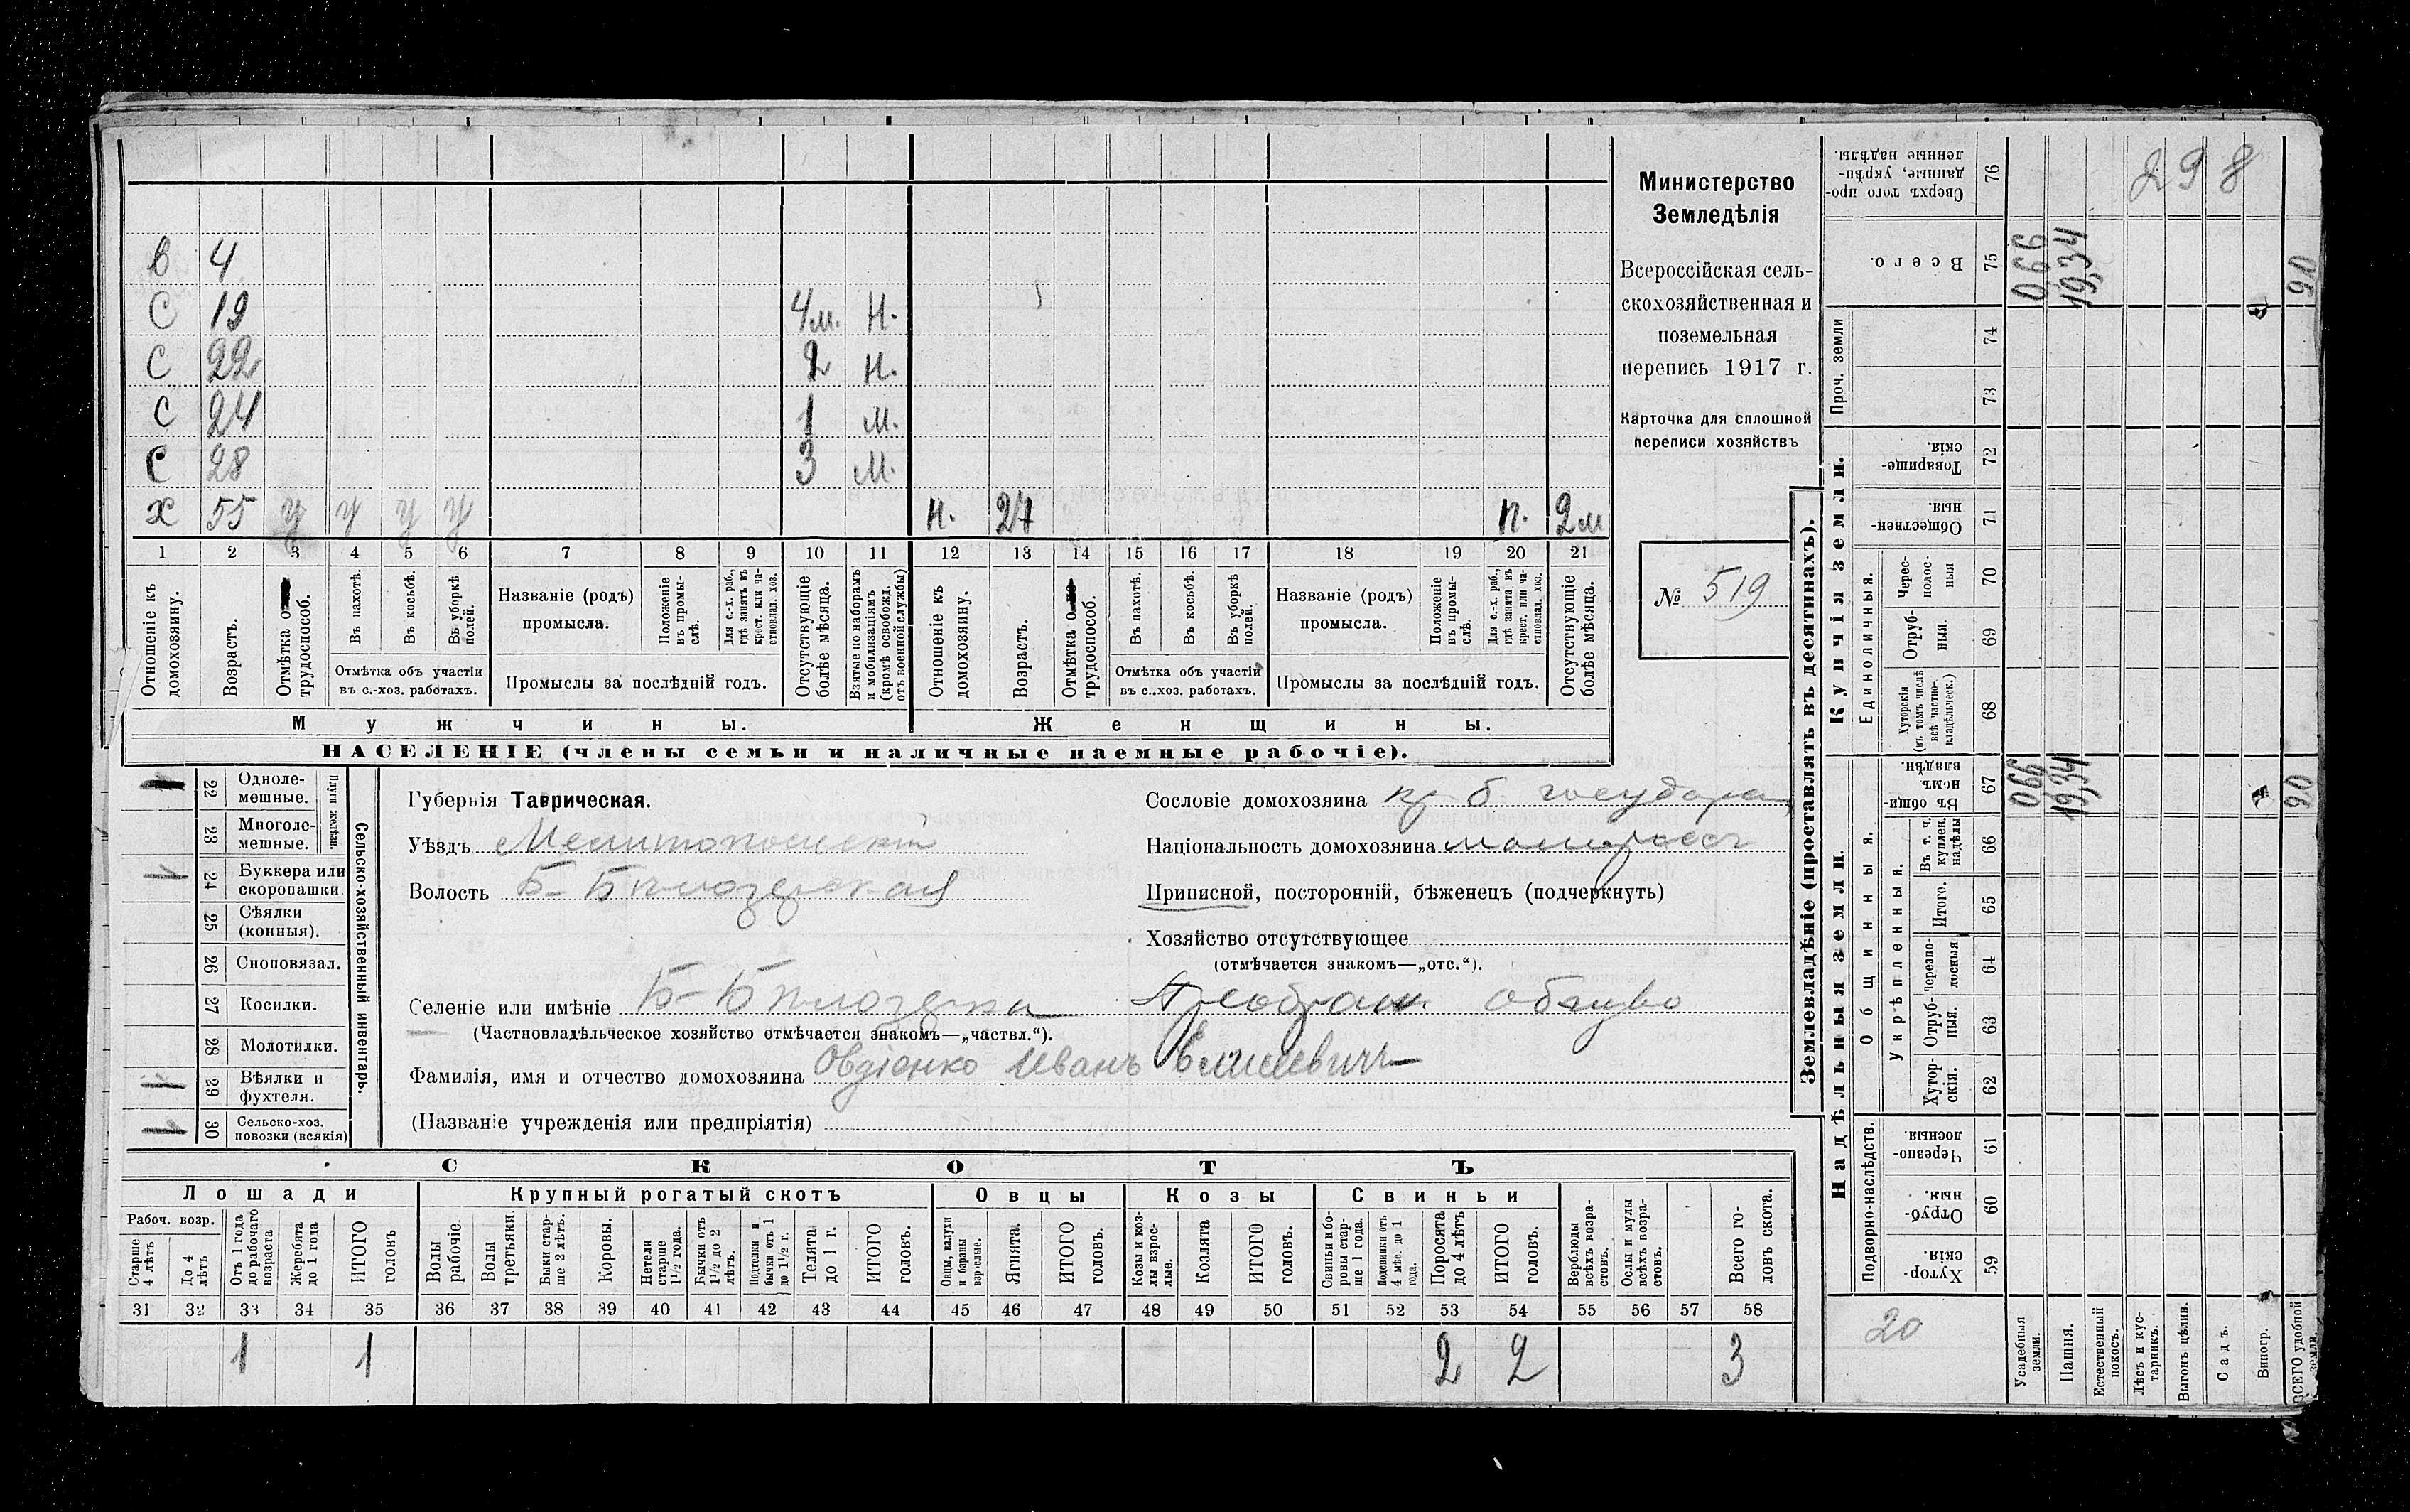 в 4
С 19 4м. Н.
С 22 2 Н.
С 24 1 М.
С 28 3 М.
х 55 у у у у Н. 27 п. 2м
1 2 3 4 5 6 7 8 9 10 11 12 13 14 15 16 17 18 19 20 21
Отношеніе къ домохозяину.
Возрастъ.
Отмѣтка о трудоспособ.
Въ пахотѣ.
Въ косьбѣ.
Въ уборкѣ полей.
Отмѣтка объ участіи въ с.-хоз. работахъ.
Названіе (родъ) промысла.
Положеніе въ промы-слѣ.
Для с.-х. раб., гдѣ занятъ въ крест. или ча-стновлад. хоз.
Промыслы за послѣдній годъ.
Отсутствующіе болѣе мѣсяца.
Взятые по наборамъ и мобилизаціямъ (кромѣ освобожд. отъ военной службы)
Отношеніе къ домохозяину.
Возрастъ.
Отмѣтка о трудоспособ.
Въ пахотѣ.
Въ косьбѣ.
Въ уборкѣ полей.
Отмѣтка объ участіи въ с..хоз. работахъ.
Названіе (родъ) промысла.
Положеніе въ промы-слѣ.
Для с.-х. раб., гдѣ занята въ крест. или ча-стновлад. хоз.
Промыслы за послѣдній годъ.
Отсутствующіе болѣе мѣсяца.
Мужчины. Женщины.
НАСЕЛЕНІЕ (члены семьи и наличные наемные рабочіе).
Министерство
Земледѣлія
Всероссійская сель-
скохозяйственная и
поземельная
перепись 1917 г.
Карточка для сплошной
переписи хозяйствъ
№ 519
Сельско-хозяйственный инвентарь.
Плуги желѣзн.
1 22 Одноле-мешные.
23 Многоле-мешные.
1 24 Буккера или скоропашки
25 Сѣялки (конныя).
26 Сноповязал.
27 Косилки.
28 Молотилки.
1 29 Вѣялки и фухтеля.
1 30 Сельско-хоз. повозки (всякія)
Губернія Таврическая.
Уѣздъ Мелитопольскій
Волость Б-Бѣлозерская
Селеніе или имѣніе Б-Бѣлозерка Преображ. общво
(Частновладѣльческое хозяйство отмѣчается знакомъ—„частвл.“).
Фамилія, имя и отчество домохозяина Овдіенко Иванъ Елисеевичъ
(Названіе учрежденія или предпріятія)
Сословіе домохозяина кр б государ
Національность домохозяина малоросс
Приписной, посторонній, бѣженецъ (подчеркнуть)
Хозяйство отсутствующее
(отмѣчается знакомъ—„отс.“).
СКОТЪ
Лошади Крупный рогатый скотъ Овцы Козы Свиньи
Рабоч. возр.
Старше 4 лѣтъ
До 4 лѣтъ
Отъ 1 года до рабочаго возраста
Жеребята до 1 года
ИТОГО головъ
Волы рабочіе.
Волы третьяки.
Быки стар-ше 2 лѣтъ.
Коровы.
Нетели старше 1½ года.
Бычки отъ 1½ до 2 лѣтъ.
Подтелки и бычки отъ 1 до 1½ г.
Телята до 1 г.
ИТОГО головъ.
Овцы, валухи и бараны взрослые.
Ягнята.
ИТОГО головъ.
Козы и коз-лы взрос-лые.
Козлята
ИТОГО головъ.
Свиньи и бо-ровы стар-ше 1 года.
Подсвинки отъ 4 мѣс. до 1 года.
Поросята до 4 лѣтъ
ИТОГО головъ.
Верблюды всѣхъ возра-стовъ.
Ослы и мулы всѣхъ возра-стовъ.
Всего го-ловъ скота.
31 32 33 34 35 36 37 38 39 40 41 42 43 44 45 46 47 48 49 50 51 52 53 54 55 56 57 58
1 1 2 2 3
Землевладѣніе (проставлять въ десятинахъ).
Надѣльныя земли. Купчія земли. Проч. земли
Подворно-наслѣдств.
Общинныя.
Укрѣпленныя.
Единоличныя.
Хутор-скія. 59
Отруб-ныя. 60
Черезпо-лосныя 61
Хутор-скія. 62
Отруб-ныя. 63
черезпо-лосныя 64
Итого. 65
Въ т. ч. куплен. надѣлы 66
Въ общи-номъ владѣн. 67
Хуторскія (въ томъ числѣ всѣ частно-владѣльческ.) 68
Отруб-ныя. 69
Черес-полос-ныя 70
Обществен-ныя. 71
Товарище-скія 72
73
74
Всего. 75
Сверхъ того про-данные, укрѣп-ленные надѣлы. 76
298
20
Усадебныя земли. 066 066
Пашня. 19,34 19,34
Естественный покосъ.
Лѣсъ и кус-тарникъ.
Выгонъ цѣлин.
Садъ.
Виногр.
ВСЕГО удобной земли.